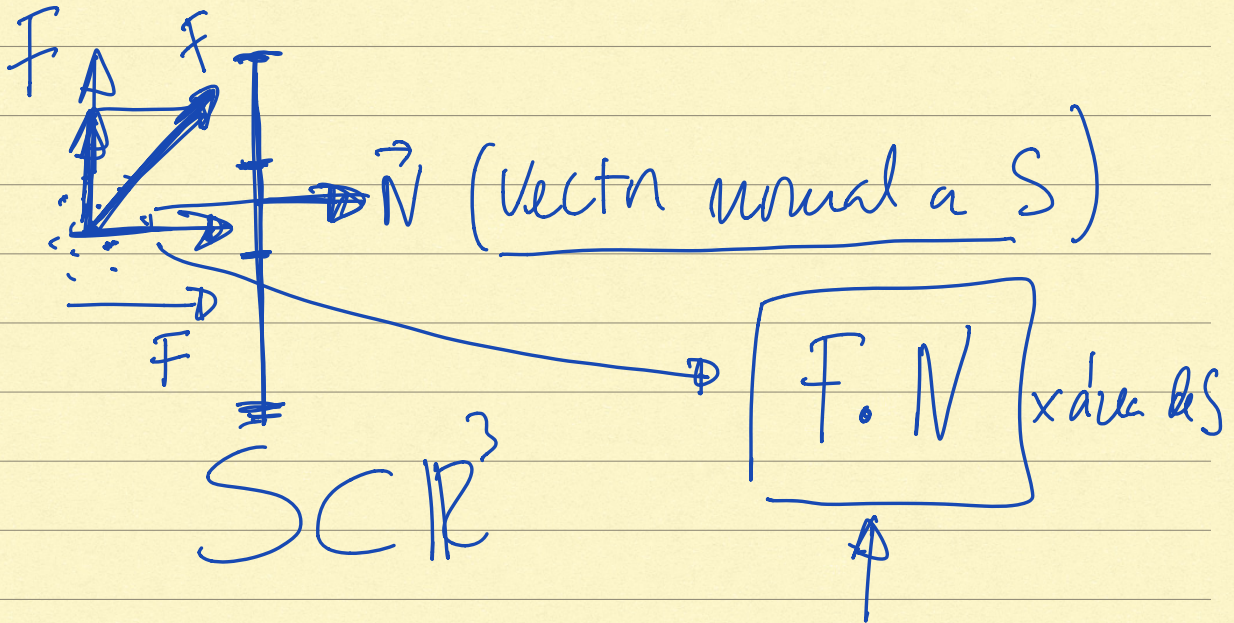 F F
N⃗ (vector normal a S)
F
F . N x área de S
S ⊂ ℝ³